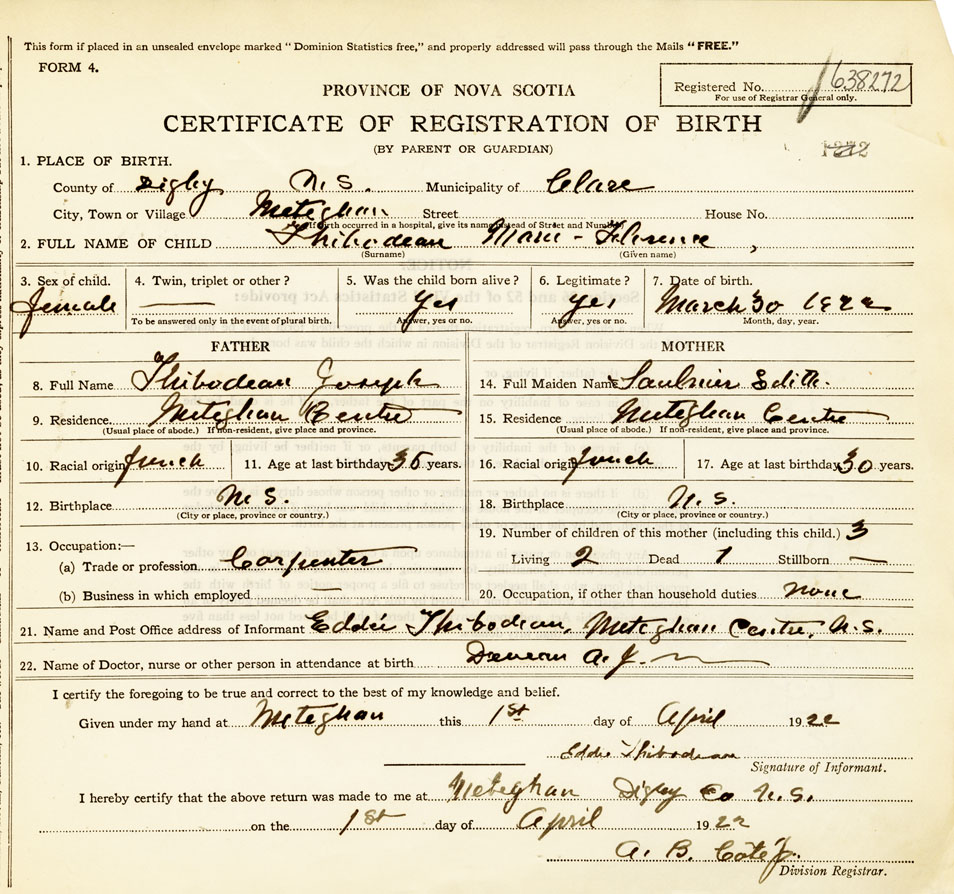 This form if placed in an unsealed envelope marked "Dominion Statistics free," and properly addressed will pass through the Mails "FREE."
FORM 4.
Registered No. 638272
For use of Registrar General only.
PROVINCE OF NOVA SCOTIA
CERTIFICATE OF REGISTRATION OF BIRTH
(BY PARENT OR GUARDIAN)
1. PLACE OF BIRTH.
County of Digby N.S. Municipality of Clare
City, Town or Village Meteghan Street House No.
(If birth occurred in a hospital, give its name instead of Street and Number)
2. FULL NAME OF CHILD Thibodeau Marie - Florence,
(Surname) (Given name)
3. Sex of child. 4. Twin, triplet or other? 5. Was the child born alive? 6. Legitimate? 7. Date of birth.
female — Yes Yes March 30 1922
To be answered only in the event of plural birth. Answer, yes or no. Answer, yes or no. Month, day, year.
FATHER MOTHER
8. Full Name Thibodeau Joseph 14. Full Maiden Name Saulnier Edith.
9. Residence Meteghan Centre 15. Residence Meteghan Centre
(Usual place of abode.) If non-resident, give place and province. (Usual place of abode.) If non-resident, give place and province.
10. Racial origin French 11. Age at last birthday years. 16. Racial origin French 17. Age at last birthday 30 years.
12. Birthplace N.S. 18. Birthplace N.S.
(City or place, province or country.) (City or place, province or country.)
19. Number of children of this mother (including this child.) 3
13. Occupation:—
(a) Trade or profession Carpenter Living 2 Dead 1 Stillborn —
(b) Business in which employed — 20. Occupation, if other than household duties none
21. Name and Post Office address of Informant Eddie Thibodeau, Meteghan Centre, N.S.
22. Name of Doctor, nurse or other person in attendance at birth A. J.
I certify the foregoing to be true and correct to the best of my knowledge and belief.
Given under my hand at Meteghan this 1st day of April 1922
Eddie Thibodeau
Signature of Informant.
I hereby certify that the above return was made to me at Meteghan Digby Co N.S.
on the 1st day of April 1922
A. B.
Division Registrar.